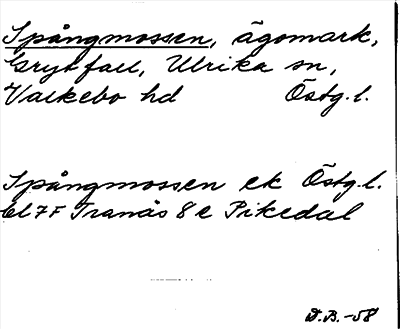 Spångmossen, ägomark,
Grytfall, Ulrika sn,
Valkebo hd Östg.l.
Spångmossen ek Östg.l.
7F Tranås 8 e Pikedal
D.B.-58